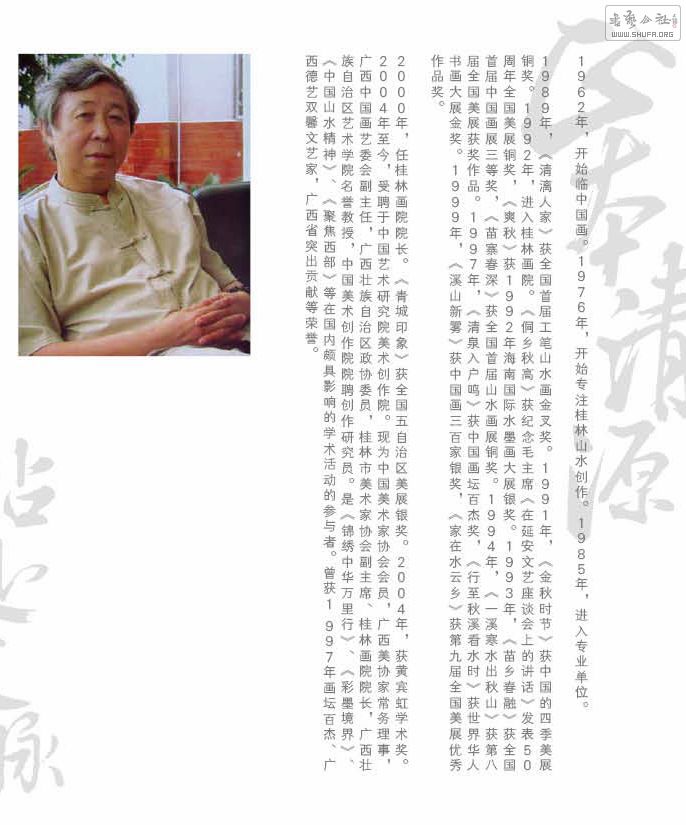 书艺公社
WWW.SHUFA.ORG
1962年，开始临中国画。1976年，开始专注桂林山水创作。1985年，进入专业单位。
1989年，《清漓人家》获全国首届工笔山水画金叉奖。1991年，《金秋时节》获中国的四季美展
铜奖。1992年，进入桂林画院。《侗乡秋高》获纪念毛主席《在延安文艺座谈会上的讲话》发表50
周年全国美展铜奖，《爽秋》获1992年海南国际水墨画大展银奖。1993年，《苗乡春融》获全国
首届中国画展三等奖，《苗寨春深》获全国首届山水画展铜奖。1994年，《一溪寒水出秋山》获第八
届全国美展获奖作品。1997年，《清泉入户鸣》获中国画坛百杰奖，《行至秋溪看水时》获世界华人
书画大展金奖。1999年，《溪山新霁》获中国画三百家银奖，《家在水云乡》获第九届全国美展优秀
作品奖。
2000年，任桂林画院院长。《青城印象》获全国五自治区美展银奖。2004年，获黄宾虹学术奖。
2004年至今，受聘于中国艺术研究院美术创作院。现为中国美术家协会会员，广西美协家常务理事，
广西中国画艺委会副主任，广西壮族自治区政协委员，桂林市美术家协会副主席、桂林画院院长，广西壮
族自治区艺术学院名誉教授，中国美术创作院院聘创作研究员。是《锦绣中华万里行》、《彩墨境界》、
《中国山水精神》、《聚焦西部》等在国内颇具影响的学术活动的参与者。曾获1997年画坛百杰、广
西德艺双馨文艺家，广西省突出贡献等荣誉。
清源